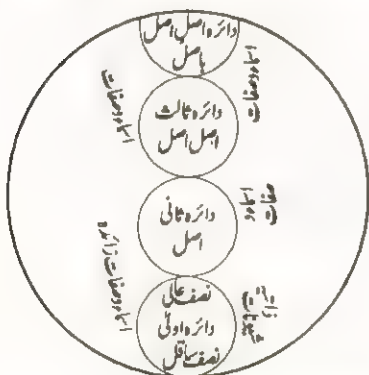 دائرہ اصل اصل
باصل
اسماء وصفات
اسماء وصفات
دائرہ ثالث
اصل اصل
صفات
اسماء و
دائرہ ثانی
اصل
اسماء وصفات زائدہ
نصف عالی
دائرہ اولیٰ
نصف سافل